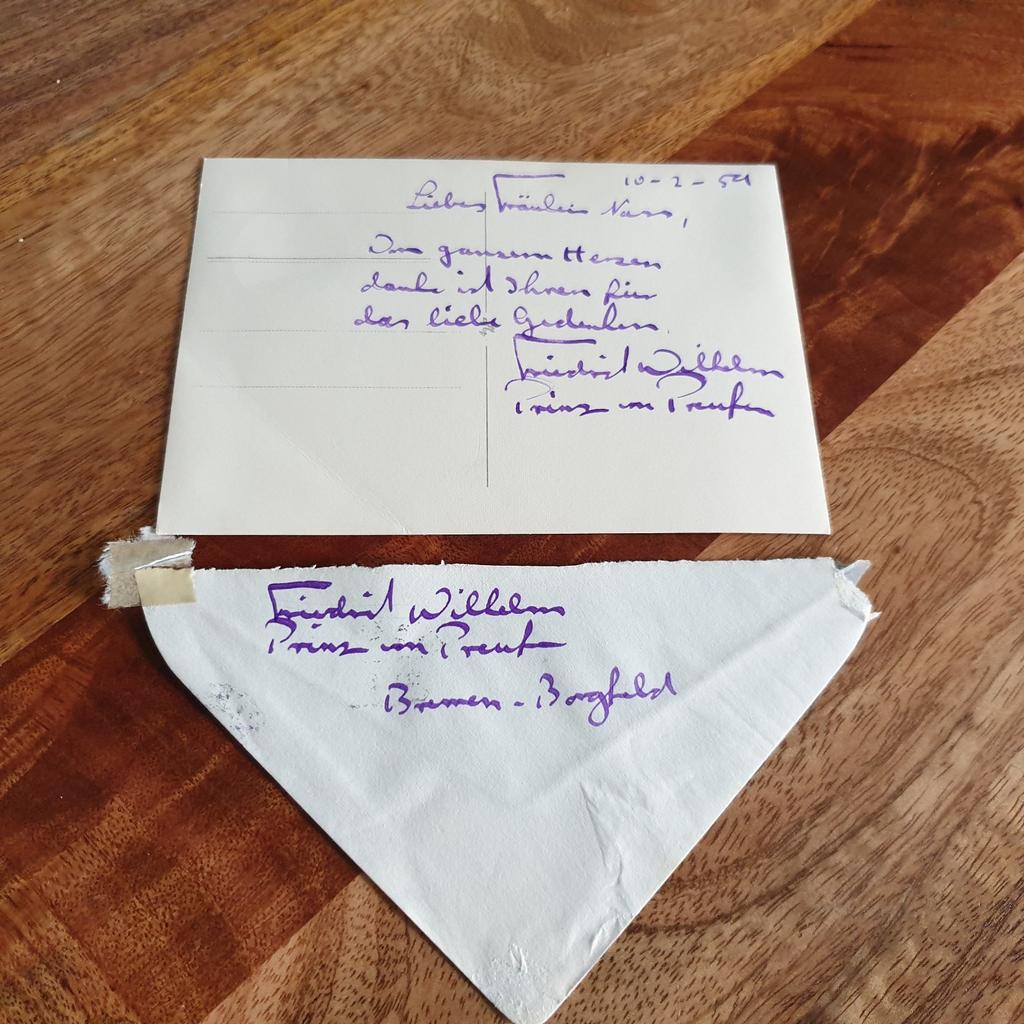 10-2-54
Liebes Fräulein Nass,
Von ganzem Herzen
danke ich Ihnen für
das liebe Gedenken.
Friedrich Wilhelm
Prinz von Preußen
Friedrich Wilhelm
Prinz von Preußen
Bremen-Borgfeld